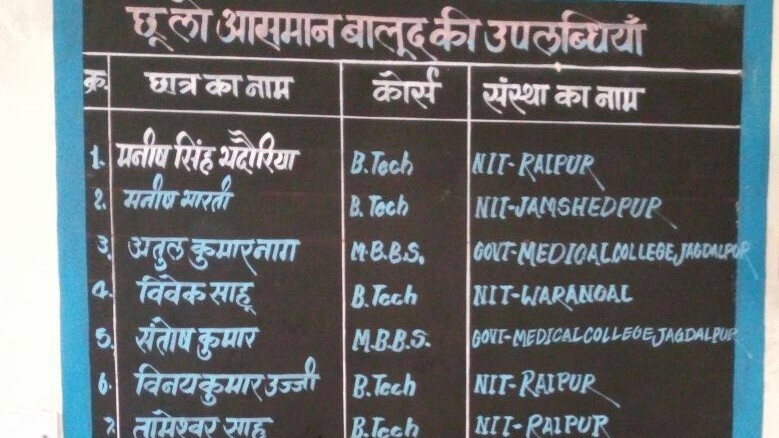 छू लो आसमान बालूद की उपलब्धियाँ
क्र. छात्र का नाम कोर्स संस्था का नाम
1. मनीष सिंह भदौरिया B.Tech NIT-RAIPUR
2. मनीष भारती B.Tech NIT-JAMSHEDPUR
3. अतुल कुमार नाग M.B.B.S. GOVT-MEDICAL COLLEGE, JAGDALPUR
4. विवेक साहू B.Tech NIT-WARANGAL
5. संतोष कुमार M.B.B.S. GOVT-MEDICAL COLLEGE, JAGDALPUR
6. विनय कुमार उज्जी B.Tech NIT-RAIPUR
7. तामेश्वर साहू B.Tech NIT-RAIPUR